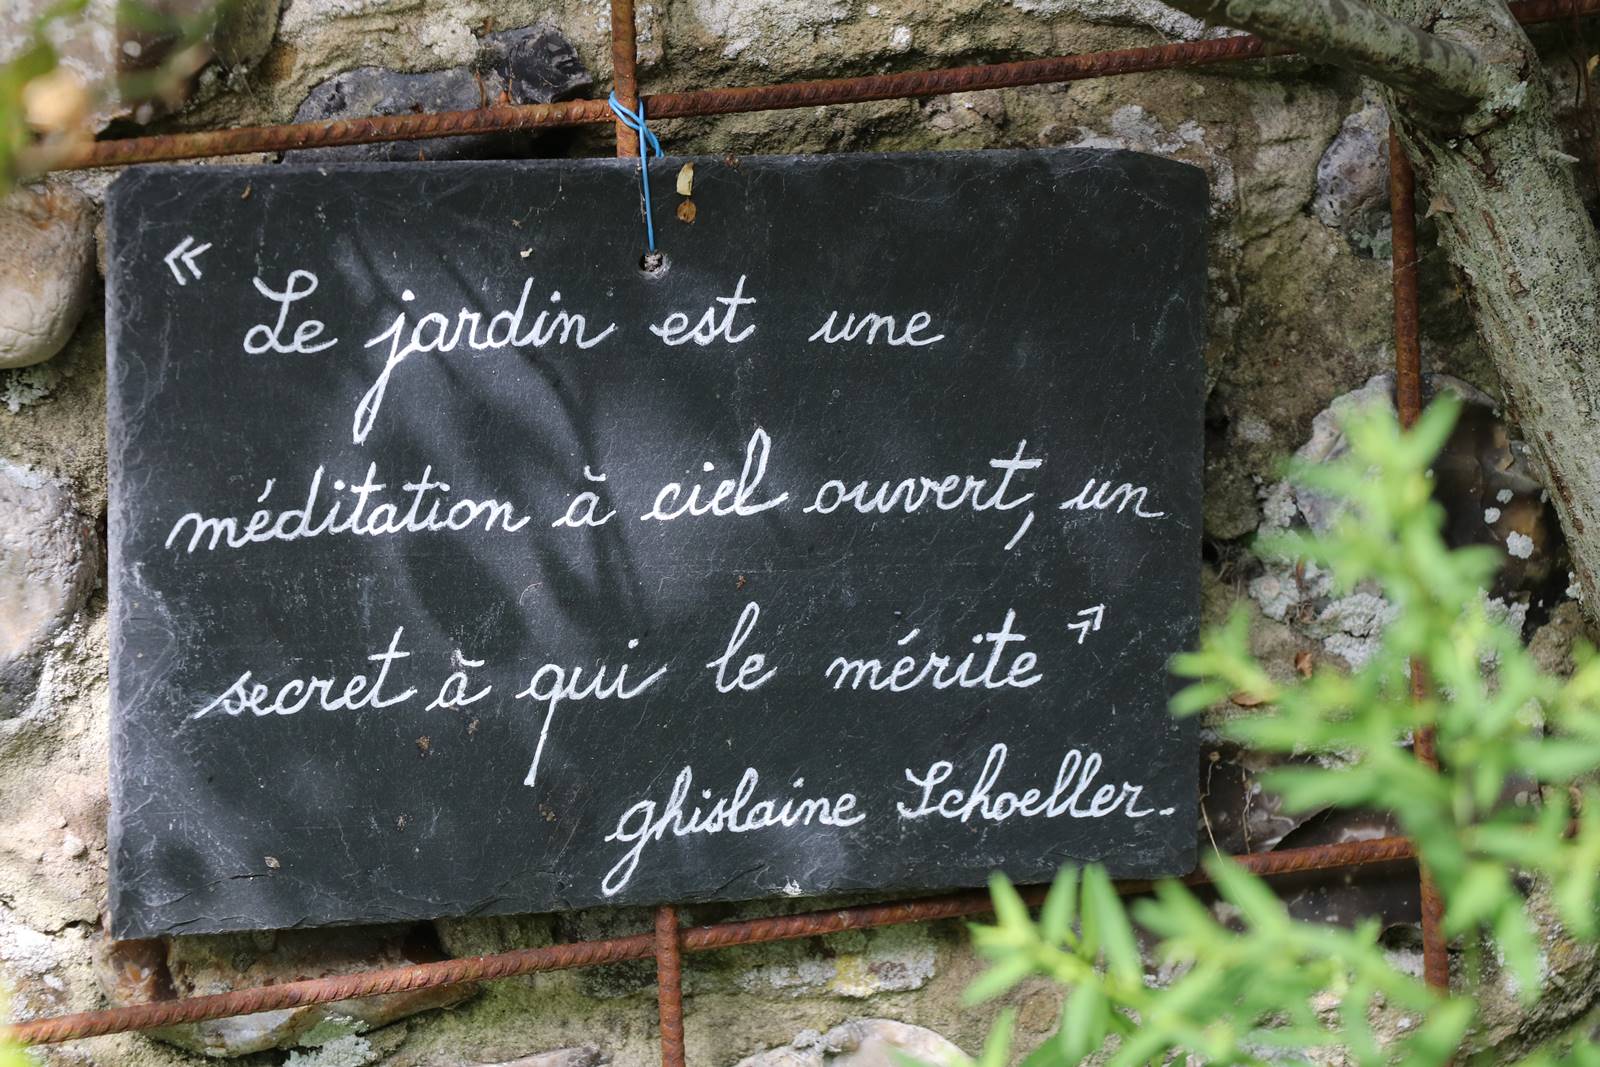 « Le jardin est une
méditation à ciel ouvert, un
secret à qui le mérite »
ghislaine Schoeller.